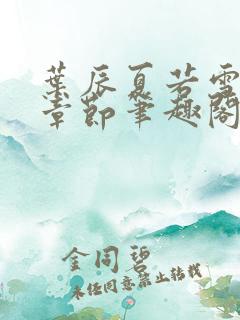 葉辰夏若雪
章節筆趣閣
金同碧
未经同意禁止转载